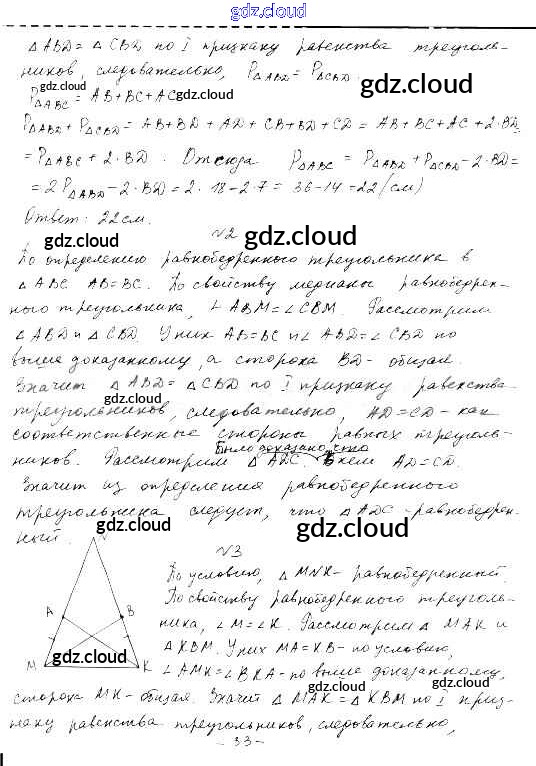 gdz.cloud
△ABD = △CBD по I признаку равенства треуголь-
ников, следовательно, P△ABD = P△CBD.
P△ABC = AB+BC+AC
gdz.cloud
gdz.cloud
gdz.cloud
P△ABD + P△CBD = AB+BD+AD+CB+BD+CD = AB+BC+AC+2·BD
= P△ABC + 2·BD. Отсюда P△ABC = P△ABD + P△CBD - 2·BD =
= 2P△ABD - 2·BD = 2·18 - 2·7 = 36 - 14 = 22 (см)
Ответ: 22 см.
gdz.cloud
№2
gdz.cloud
По определению равнобедренного треугольника в
△ABC AB=BC. По свойству медианы равнобедрен-
ного треугольника, ∠ABM=∠CBM. Рассмотрим
△ABD и △CBD. У них AB=BC и ∠ABD=∠CBD по
выше доказанному, а сторона BD - общая.
Значит △ABD = △CBD по I признаку равенства
gdz.cloud
треугольников, следовательно, AD=CD - как
соответственные стороны равных треуголь-
было доказано, что
ников. Рассмотрим △ADC. В нем AD=CD.
Значит из определения равнобедренного
треугольника следует, что △ADC - равнобедрен-
ный.
gdz.cloud
gdz.cloud
№3
N
По условию, △MNK - равнобедренный.
По свойству равнобедренного треуголь-
ника, ∠M=∠K. Рассмотрим △MAK и
A
B
△KBM. У них MA=KB - по условию,
gdz.cloud
M
K
∠AMK=∠BKA - по выше доказанному,
gdz.cloud
gdz.cloud
сторона MK - общая. Значит △MAK = △KBM по I приз-
наку равенства треугольников, следовательно,
- 33 -